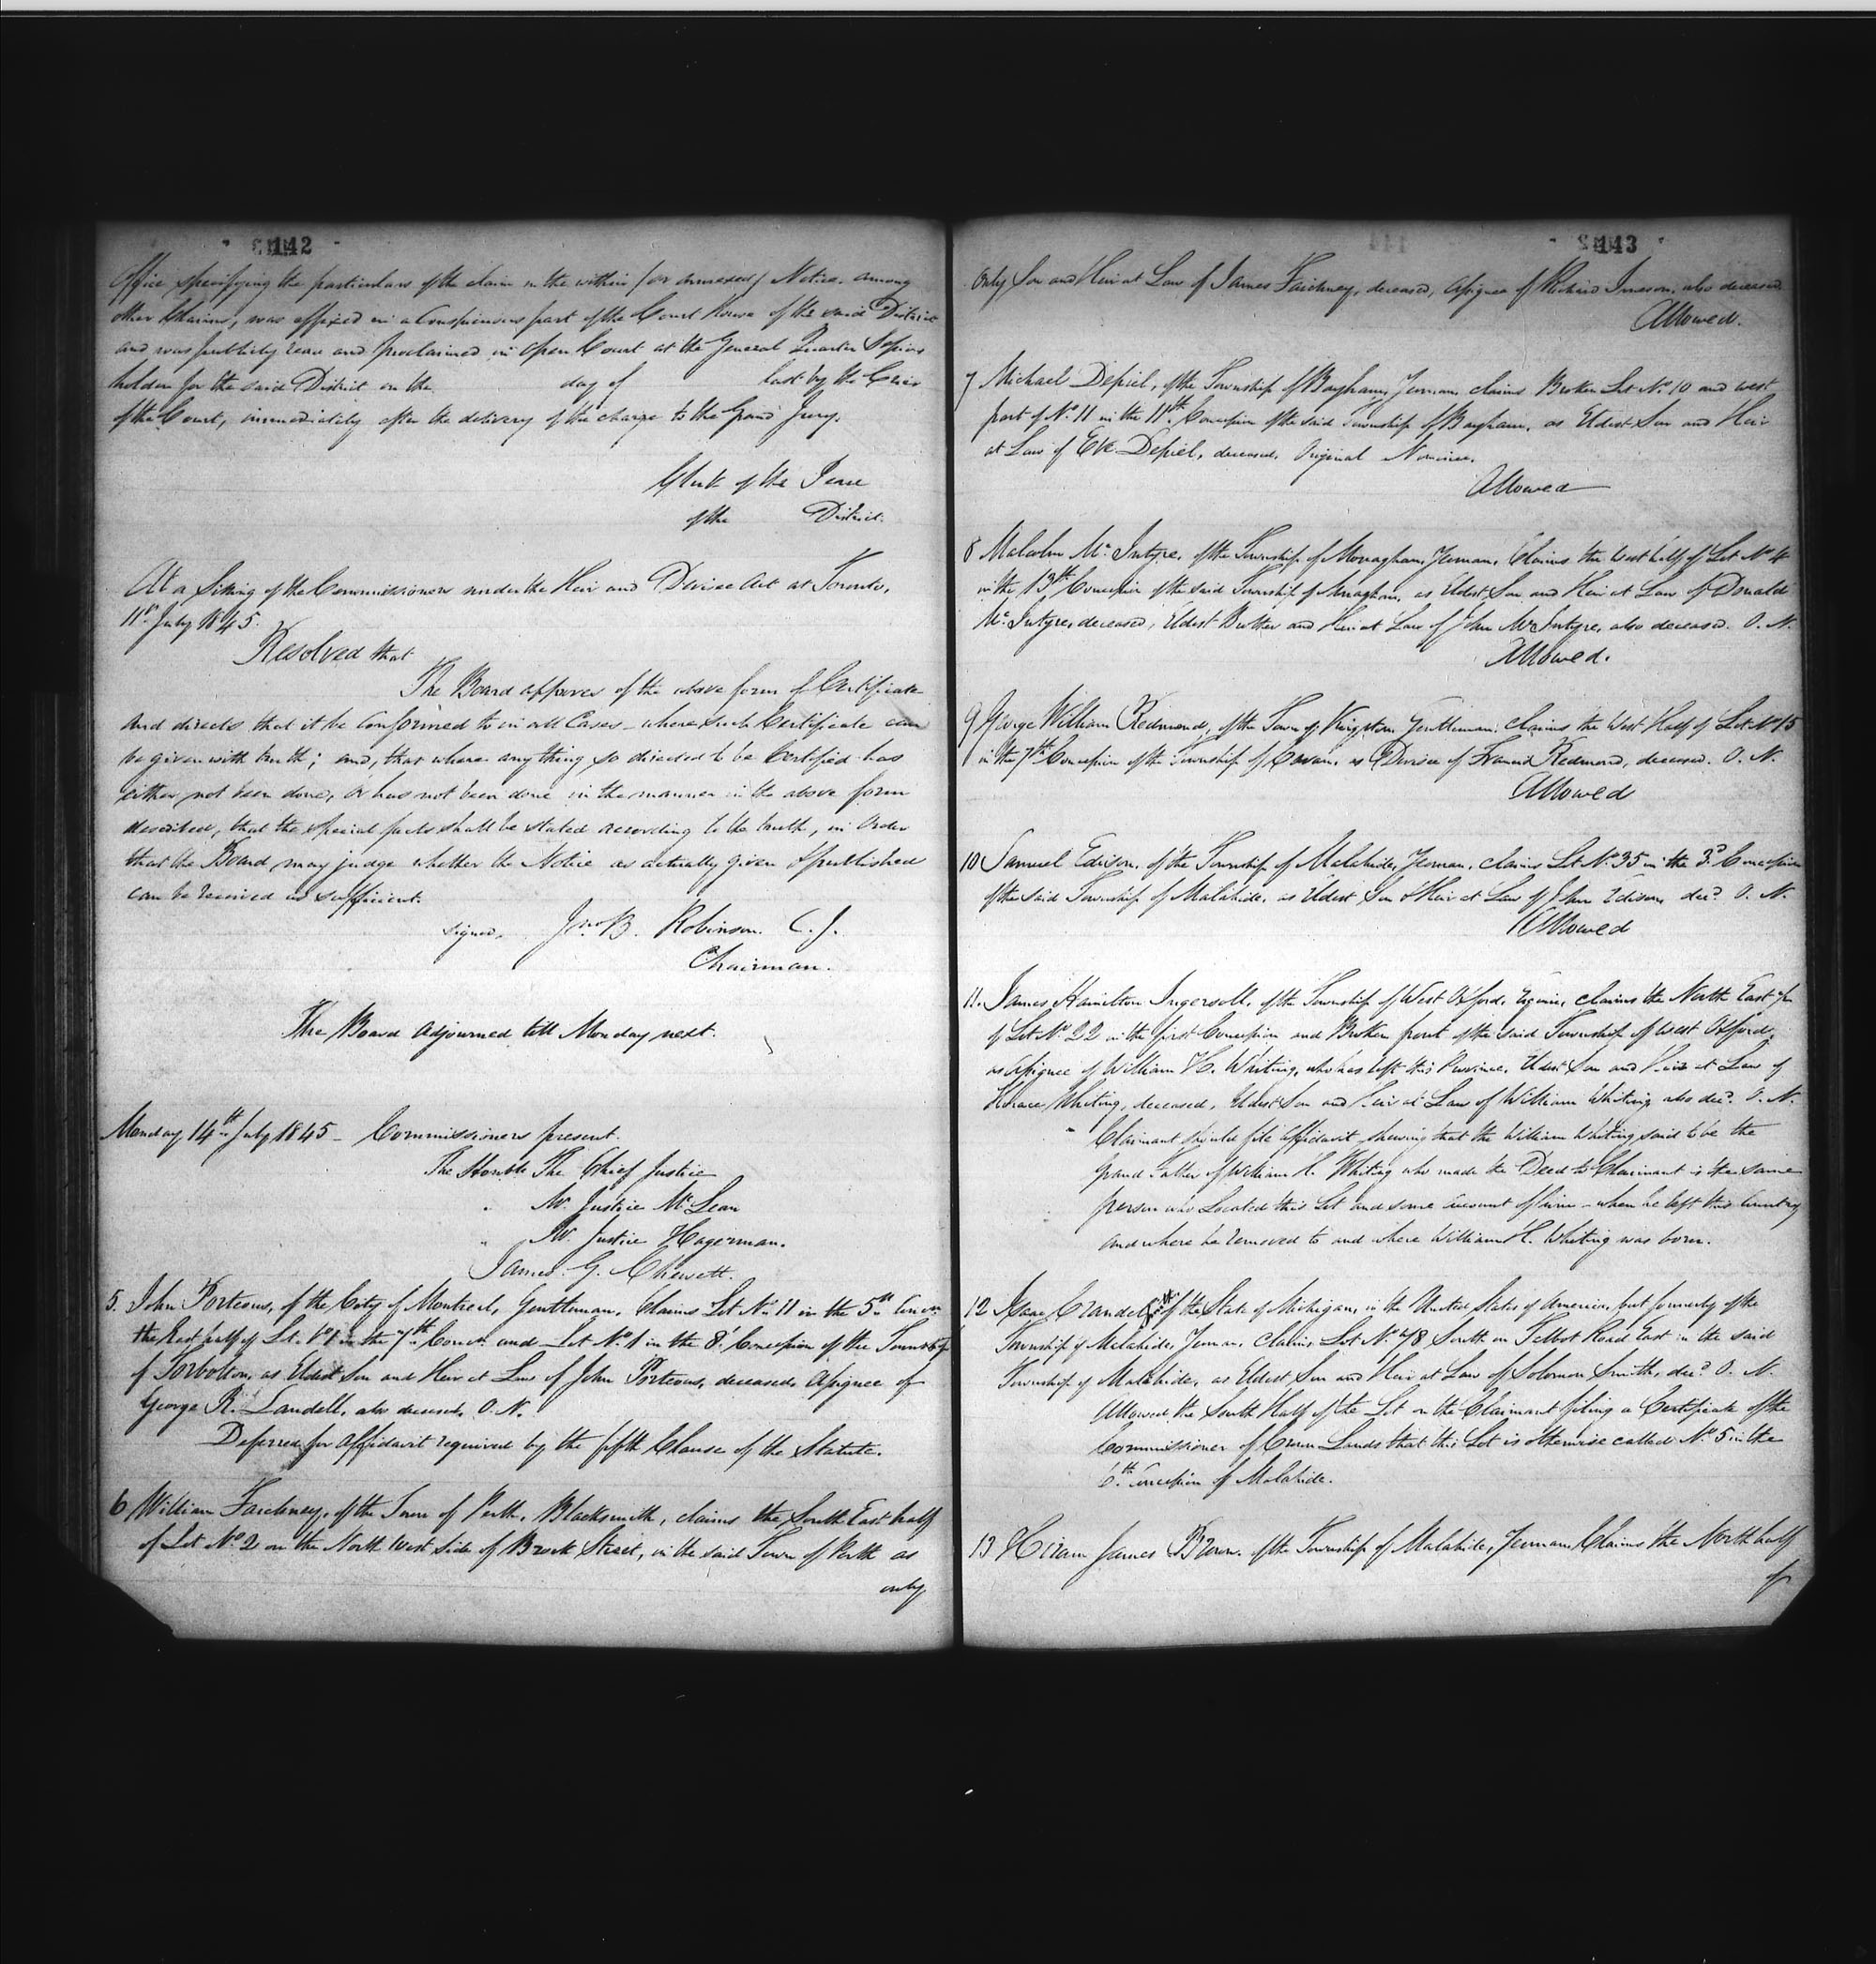 142
Office specifying the particulars of the claim in the within (or annexed) Notice, among
other Claims, was affixed in a Conspicuous part of the Court House of the said District
and was publicly read and proclaimed in open Court at the General Quarter Sessions
holden for the said District on the day of last by the Crier
of the Court, immediately after the delivery of the charge to the Grand Jury.
Clerk of the Peace
of the District.
At a Sitting of the Commissioners under the Heir and Devisee Act at Toronto,
11th July 1845.
Resolved that
The Board approves of the above form of Certificate
and directs that it be Conformed to in all Cases where such Certificate can
be given with truth; and, that where anything so directed to be Certified has
either not been done, or has not been done in the manner in the above form
described, that the special facts shall be stated according to the truth, in Order
that the Board may judge whether the Notice as actually given & published
can be received as sufficient.
signed, Jno B. Robinson C.J.
Chairman.
The Board adjourned till Monday next.
Monday 14th July 1845 - Commissioners present.
The Honble The Chief Justice
" Mr. Justice McLean
" Mr. Justice Hagerman.
James G. Chewett.
5. John Porteous, of the City of Montreal, Gentleman, Claims Lot No. 11 in the 5th Concn
the East half of Lt. No 1 in the 7th Concn. and Lot No 1 in the 8th Concession of the Township
of Torbolton, as Eldest Son and Heir at Law of John Porteous, deceased, Assignee of
George R. Landell, also deceased, O.N.
Deferred for affidavit required by the fifth Clause of the Statute.
6 William Fairchney, of the Town of Perth, Blacksmith, claims the South East half
of Lot No. 2 on the North West Side of Brock Street, in the said Town of Perth as
only
143
Only Son and Heir at Law of James Fairchney, deceased, Assignee of Richard also deceased
Allowed.
7 Michael Depiel, of the Township of Bayham, Yeoman, claims Broken Lot No. 10 and west
part of No. 11 in the 11th Concession of the said Township of Bayham, as Eldest Son and Heir
at Law of Depiel, deceased, Original Nominee.
Allowed
8 Malcolm McIntyre, of the Township of Monaghan, Yeoman, Claims the West half of Lot No 4
in the 13th Concession of the said Township of Monaghan, as Eldest Son and Heir at Law of Donald
McIntyre, deceased, Eldest Brother and Heir at Law of John McIntyre, also deceased. O.N.
Allowed.
9 George William Redmond, of the Town of Kingston, Gentleman, Claims the West Half of Lot No 15
in the 7th Concession of the Township of Cavan, as Devisee of Francis Redmond, deceased. O.N.
Allowed
10 Samuel Edison, of the Township of Malahide, Yeoman, claims Lot No. 35 in the 3d Concession
of the said Township of Malahide, as Eldest Son & Heir at Law of John Edison, decd. O.N.
Allowed
11. James Hamilton Ingersoll, of the Township of West Oxford, Esquire, claims the North East
of Lot No. 22 in the first Concession and Broken front of the said Township of West Oxford,
as Assignee of William H. Whiting, who has left this Province, Eldest Son and Heir at Law of
Horace Whiting, deceased, Eldest Son and Heir at Law of William Whiting also decd. O.N.
Claimant should file affidavit shewing that the William Whiting said to be the
Grand Father of William H. Whiting who made the Deed to Claimant is the same
person who Located this Lot and some account of him - when he left this Country
and where he removed to and where William H. Whiting was born.
12 Isaac Crandell of the State of Michigan, in the United States of America, but formerly of the
Township of Malahide, Yeoman, Claims Lot No. 78 South on Talbot Road East in the said
Township of Malahide, as Eldest Son and Heir at Law of Solomon Smith, decd. O.N.
Allowed the South Half of the Lot on the Claimant filing a Certificate of the
Commissioner of Crown Lands that this Lot is otherwise called No. 5 in the
6th Concession of Malahide.
13 Hiram James Brown, of the Township of Malahide, Yeoman Claims the North half
of